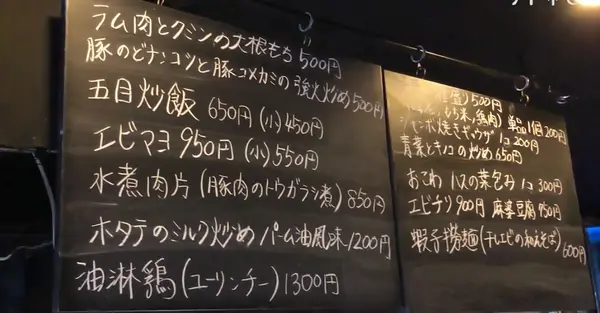 ラム肉とクミンの大根もち500円
豚のどナンコツと豚コメカミの強火炒め500円
五目炒飯 650円(小)450円
エビマヨ 950円(小)550円
水煮肉片(豚肉のトウガラシ煮)850円
ホタテのミルク炒めパーム油風味1200円
油淋鶏(ユーリンチー)1300円
500円
もち米、鶏肉)単品1個200円
ジャンボ焼きギョウザ 1コ200円
青菜とキノコの炒め650円
おこわ ハスの葉包み 1コ300円
エビチリ900円 麻婆豆腐950円
蝦子撈麺(干しエビの和えそば)600円